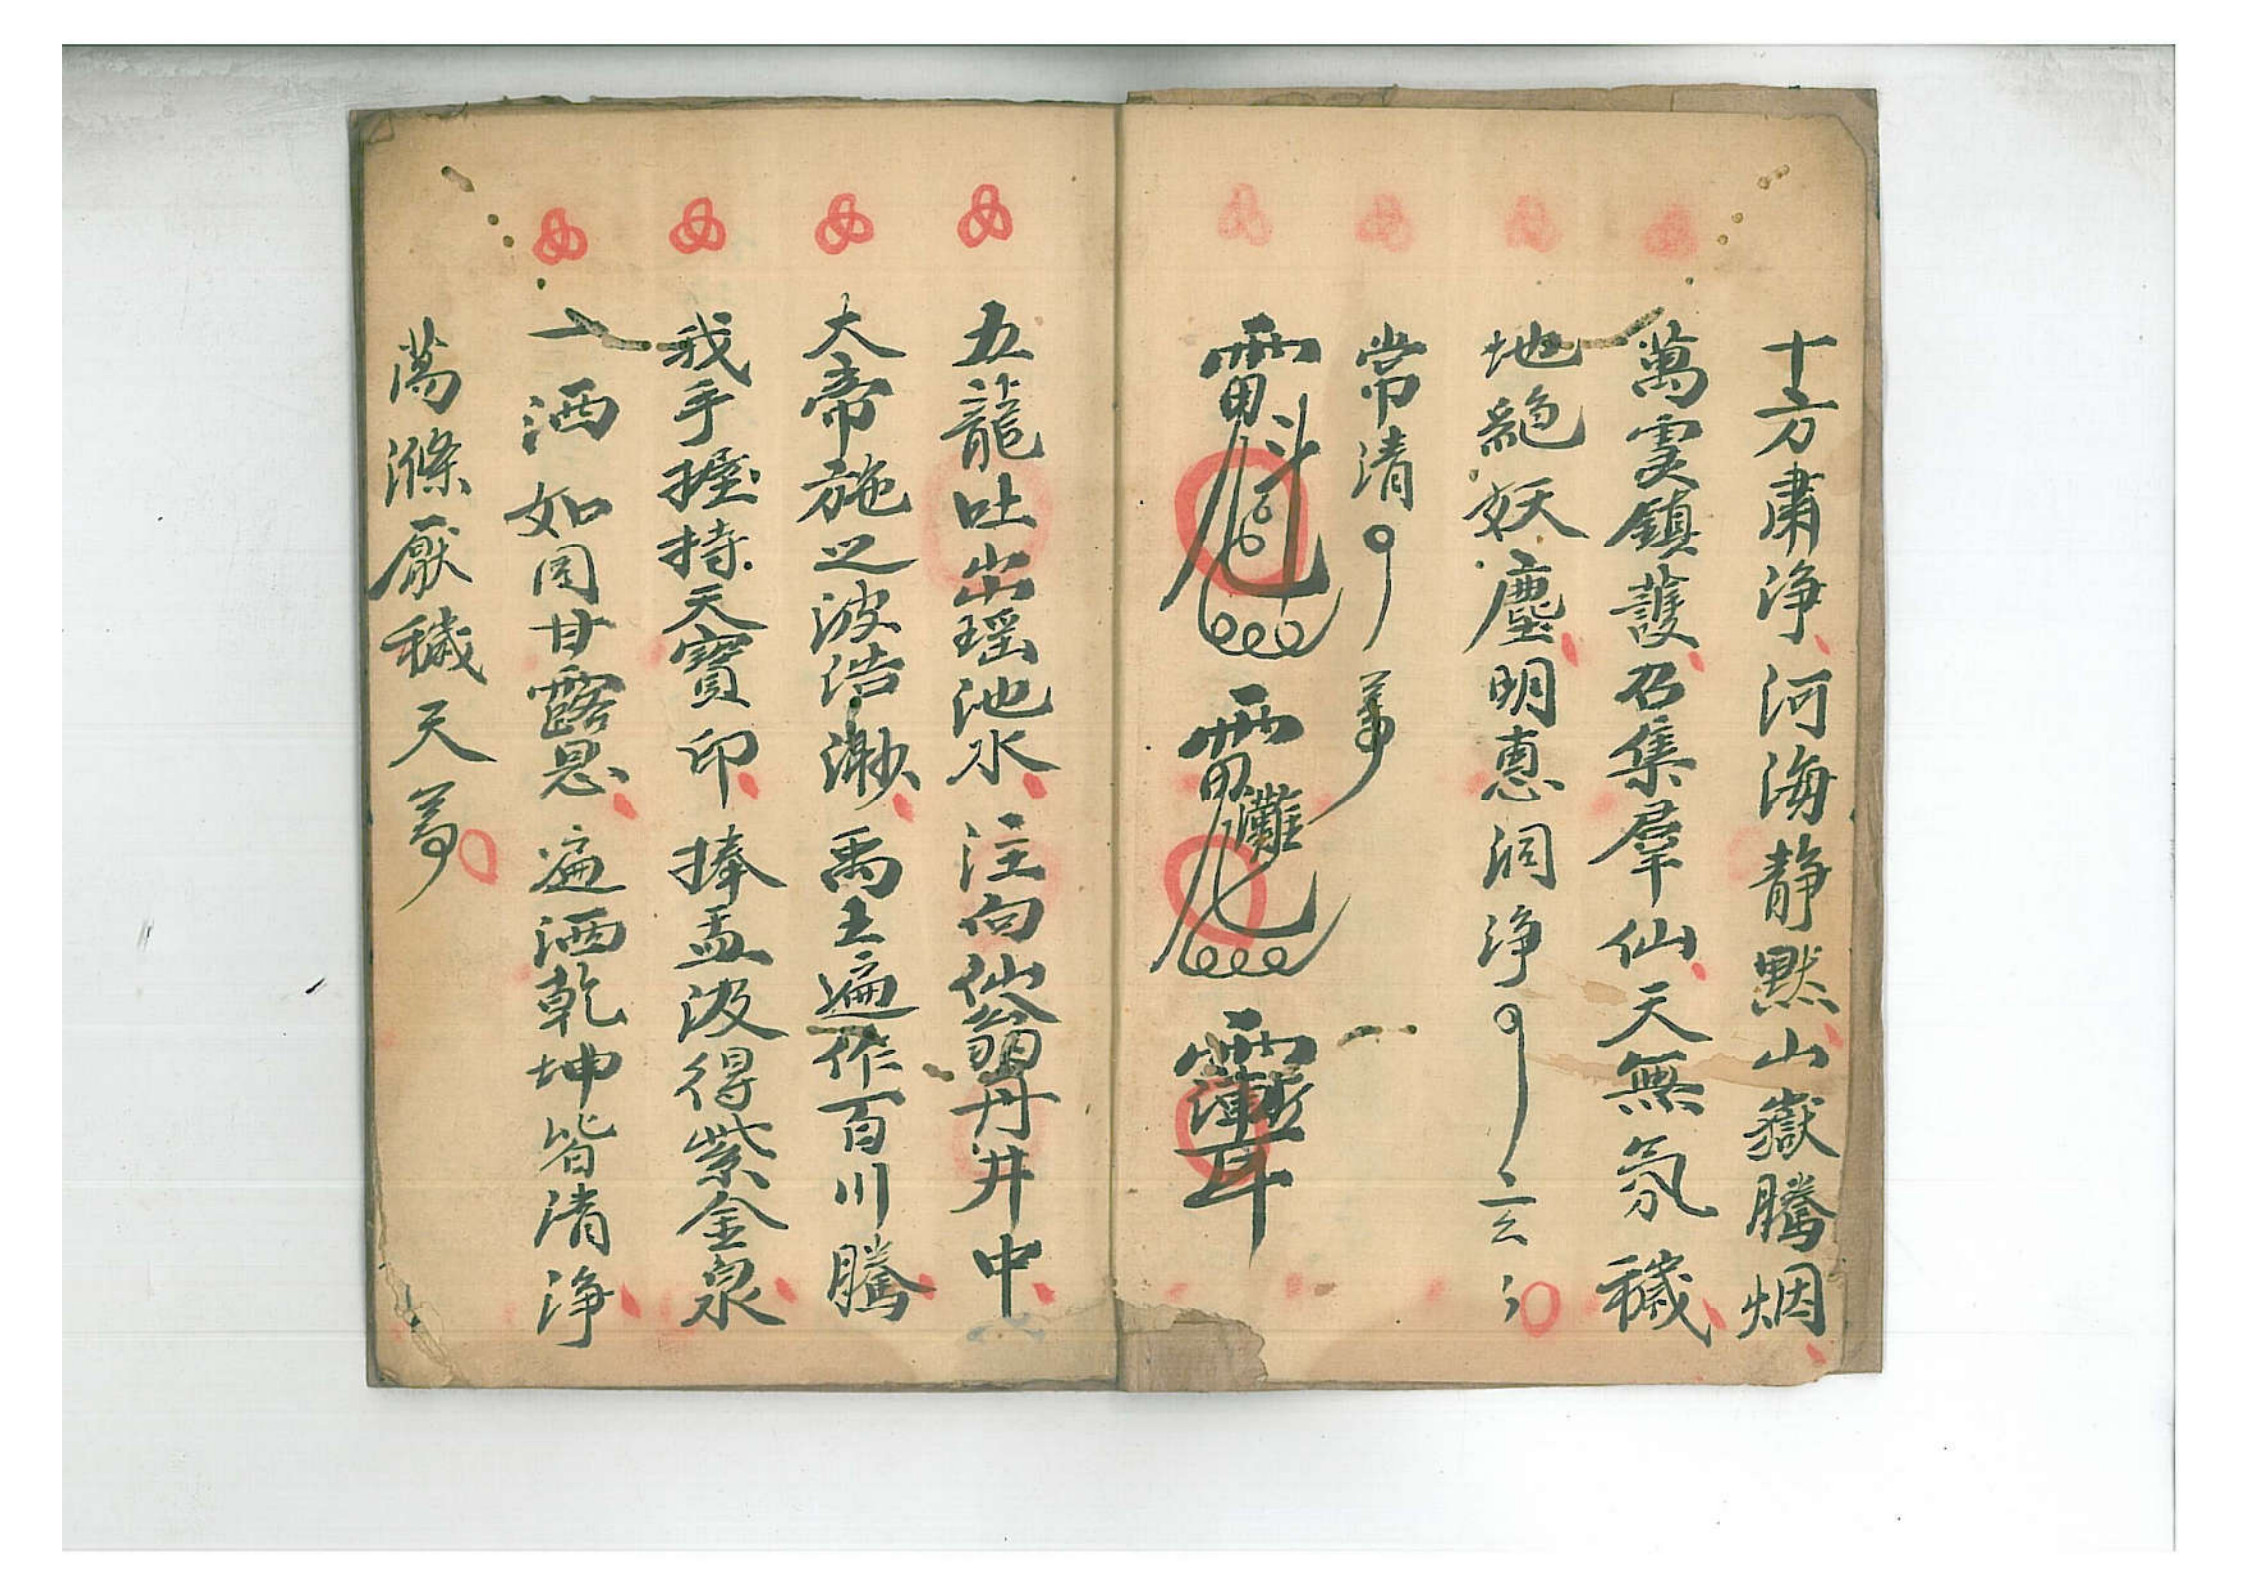 十方肅净河海静默山嶽騰烟
萬灵鎮護召集羣仙天無氛穢
地絕妖塵明惠洞净 玄
常清
五龍吐出瑶池水注向仙翁丹井中
大帝施之波浩渺禹土遍作百川騰
我手握持天寶印捧盂汲得紫金泉
一洒如同甘露恩遍洒乾坤皆清净
蕩滌厭穢天